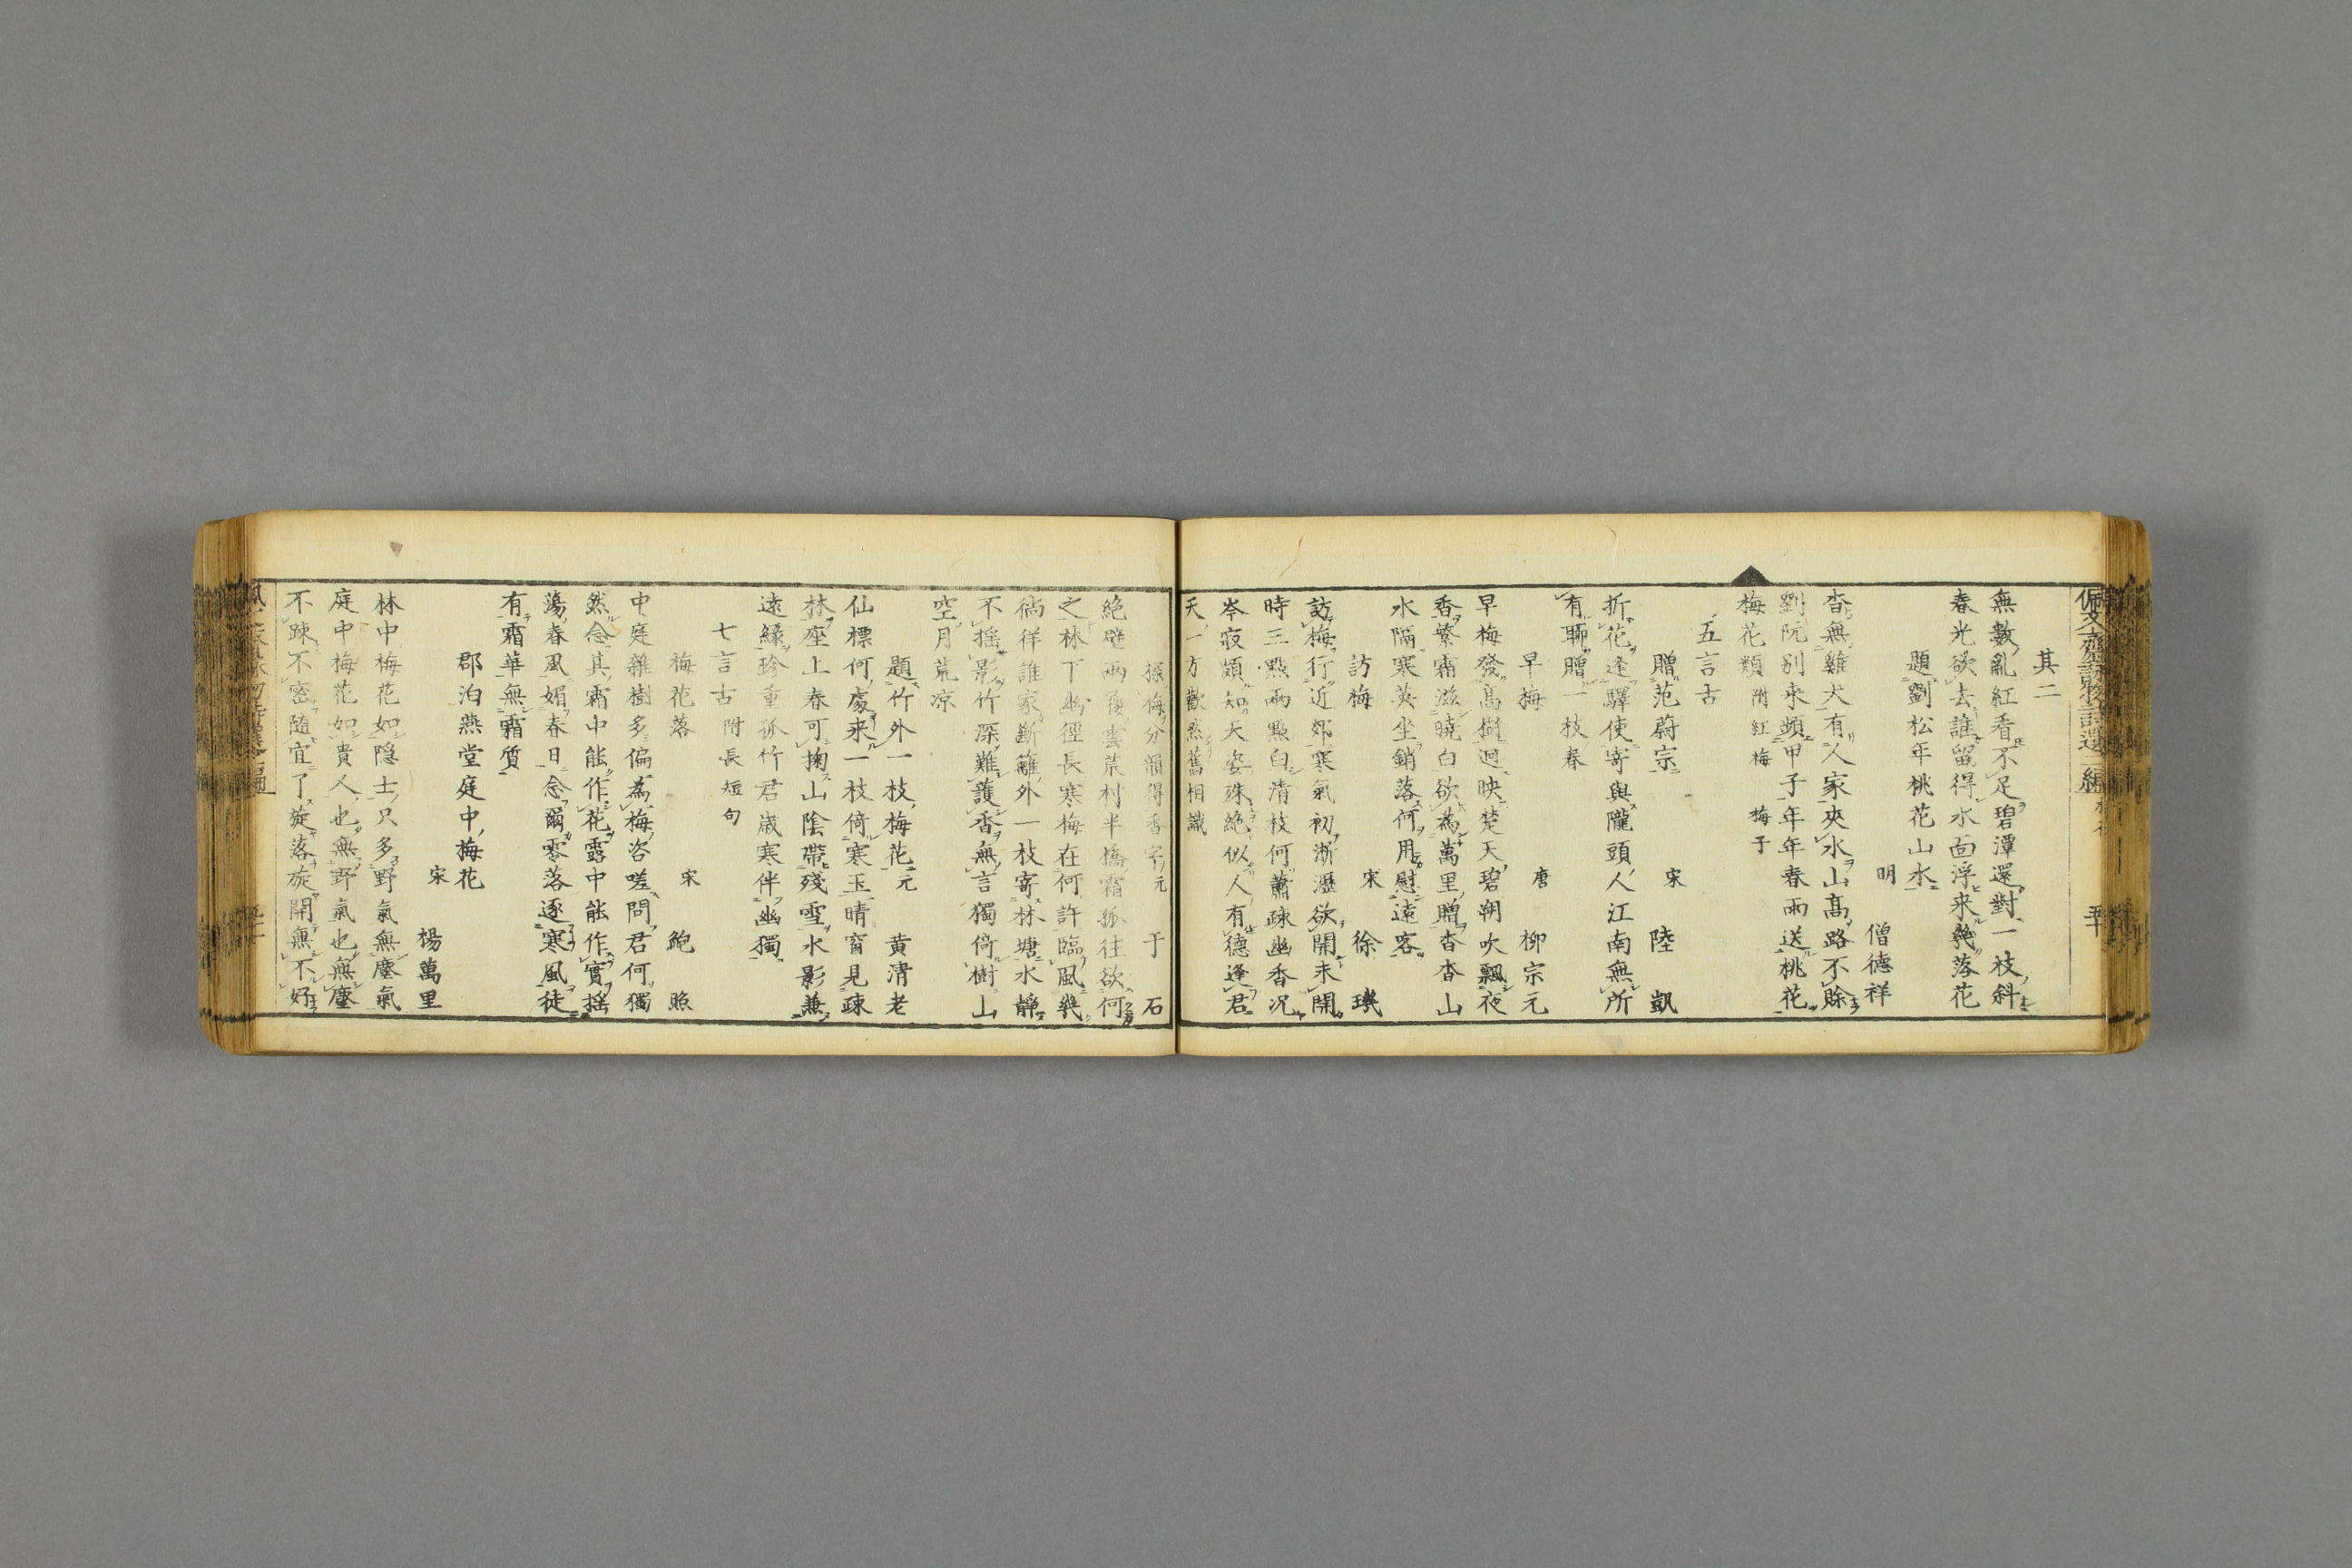 佩文齋詠物詩選二編
五十
其二
無數亂紅香不足碧潭還對一枝斜
春光欲去誰留得水面浮来幾落花
題劉松年桃花山水
明 僧德祥
杳無雞犬有人家夾水山髙路不賒
劉阮别来頻甲子年年春雨送桃花
梅花類 附紅梅 梅子
五言古
贈范蔚宗 宋 陸凱
折花逢驛使寄與隴頭人江南無所
有聊贈一枝春
早梅 唐 柳宗元
早梅發髙樹迥映楚天碧朔吹飄夜
香繁霜滋曉白欲為萬里贈杳杳山
水隔寒英坐銷落何用慰遠客
訪梅 宋 徐璣
訪梅行近郊寒氣初淅瀝欲開未開
時三點兩點白清枝何蕭疎幽香况
岑寂頗知天姿殊絶似人有德逢君
天一方歡然舊相識
探梅分韻得香字 元 于石
絶壁兩雲荒村半橋霜孤往欲何
之林下幽徑長寒梅在何許臨風幾
徜徉誰家斷籬外一枝寄林塘水靜
不搖影竹深難護香無言獨倚樹山
空月荒凉
題竹外一枝梅花 元 黄清老
仙標何處来一枝倚寒玉晴窗見疎
林座上春可掬山陰帶殘雪水影兼
遠緑珍重孤竹君歳寒伴幽獨
七言古 附長短句
梅花落 宋 鮑照
中庭雜樹多偏為梅咨嗟問君何獨
然念其霜中能作花露中能作實搖
蕩春風媚春日念爾零落逐寒風徒
有霜華無霜質
郡泊燕堂庭中梅花
宋 楊萬里
林中梅花如隐士只多野氣無塵氣
庭中梅花如貴人也無野氣也無塵
不疎不密随宜了旋落旋開無不好